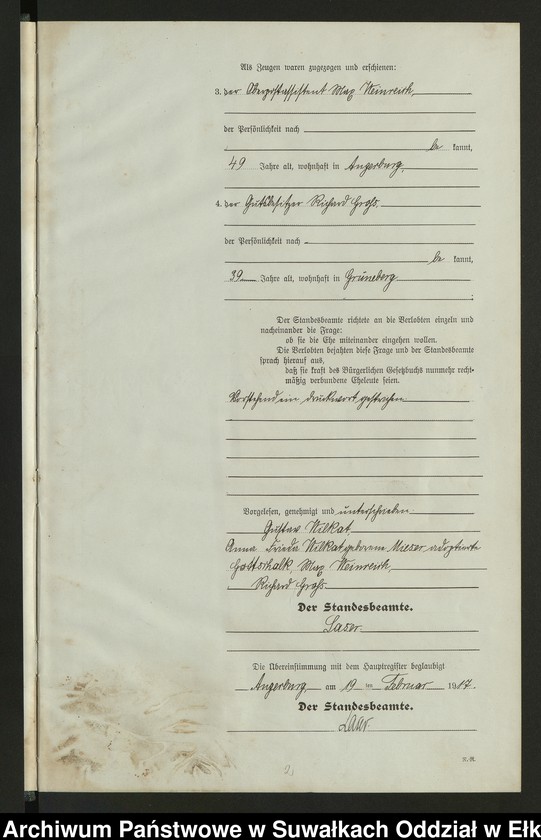 Als Zeugen waren zugezogen und erschienen:
3. der Oberpostassistent Max Weinreich,
der Persönlichkeit nach
be kannt,
49 Jahre alt, wohnhaft in Angerburg,
4. der Gutsbesitzer Richard Groß,
der Persönlichkeit nach
be kannt,
39 Jahre alt, wohnhaft in Grüneberg
Der Standesbeamte richtete an die Verlobten einzeln und
nacheinander die Frage:
ob sie die Ehe miteinander eingehen wollen.
Die Verlobten bejahten diese Frage und der Standesbeamte
sprach hierauf aus,
daß sie kraft des Bürgerlichen Gesetzbuchs nunmehr recht-
mäßig verbundene Eheleute seien.
Vorstehend ein Druckwort gestrichen
Vorgelesen, genehmigt und unterschrieben
Gustav Wilkat,
Anna Frieda Wilkat geborene Mieser adoptierte
Gottschalk, Max Weinreich,
Richard Groß.
Der Standesbeamte.
Die Übereinstimmung mit dem Hauptregister beglaubigt
Angerburg am 19 ten Februar 1917.
Der Standesbeamte.
Archiwum Państwowe w Suwałkach Oddział w Ełk